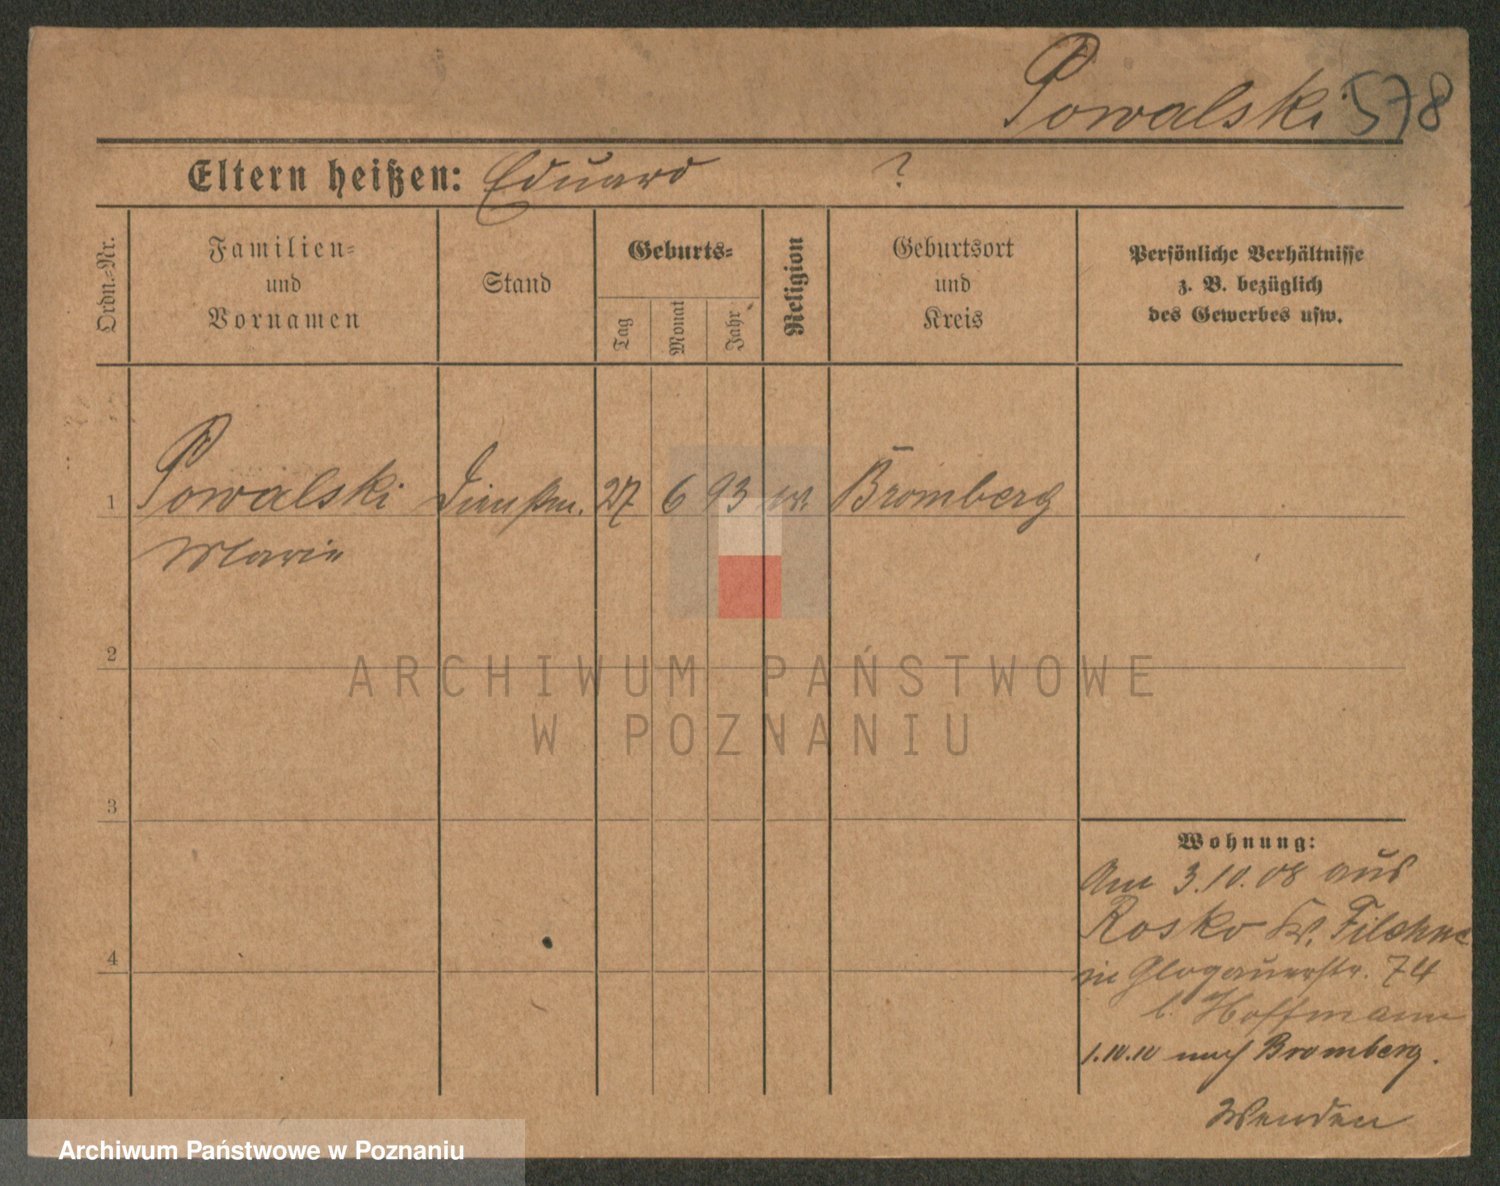 Powalski 578
Eltern heißen: Eduard ?
Ordn.-Nr.
Familien-
und
Vornamen
Stand
Geburts-
Tag
Monat
Jahr
Religion
Geburtsort
und
Kreis
Persönliche Verhältnisse
z. B. bezüglich
des Gewerbes usw.
1 Powalski Dienstm. 27 6 93 ev. Bromberg
Marie
2
3
4
Wohnung:
Am 3.10.08 aus
Rosko Kr. Filehne
in Glogauerstr. 74
b. Hoffmann
1.10.10 nach Bromberg.
Wenden
ARCHIWUM PAŃSTWOWE
W POZNANIU
Archiwum Państwowe w Poznaniu